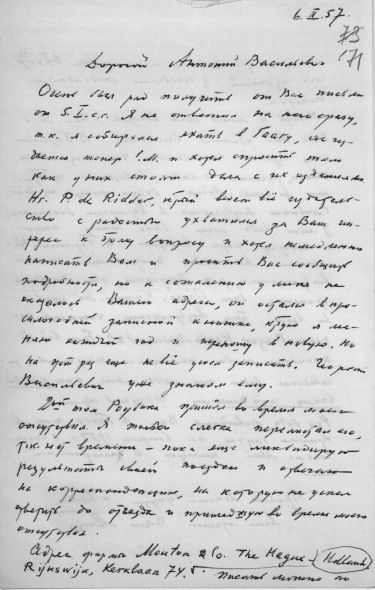 6. II. 57.
73
71
Дорогой Антоний Васильевич
Очень был рад получить от Вас письмо
от 5.I.с.г. Я не ответил на него сразу,
т.к. я собирался ехать в Гаагу, где
и хотел спросить там
как у них стоят дела с их изданиями
Hr. P. de Ridder, к-рый ведет всё издатель-
ство с радостью ухватился за Ваш ин-
терес к этому вопросу и хотел немедленно
написать Вам и просить Вас сообщить
подробности, но к сожалению у меня не
оказалось Вашего адреса, он остался в про-
шлогодней записной книжке, к-рую я ме-
няю каждый год и переношу в новую. Но
на этот раз еще не всё успел записать. Георгий
Васильевич уже знаком ему.
том Роудвика пришел во время моего
отсутствия. Я только слегка перелистал его,
т.к. нет времени – пока еще ликвидирую
результаты своей поездки и отвечаю
на корреспонденцию, на которую не успел
ответить до отъезда и пришедшую во время моего
отсутствия.
Адрес фирмы Mouton & Co. The Hague – Holland
Rijkswijk, Kerklaan 74. писать можно по